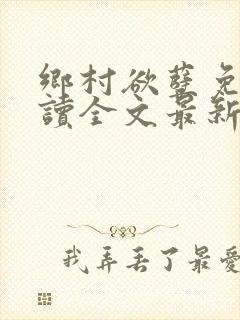 鄉村欲孽免
讀全文最新
我弄丟了最愛